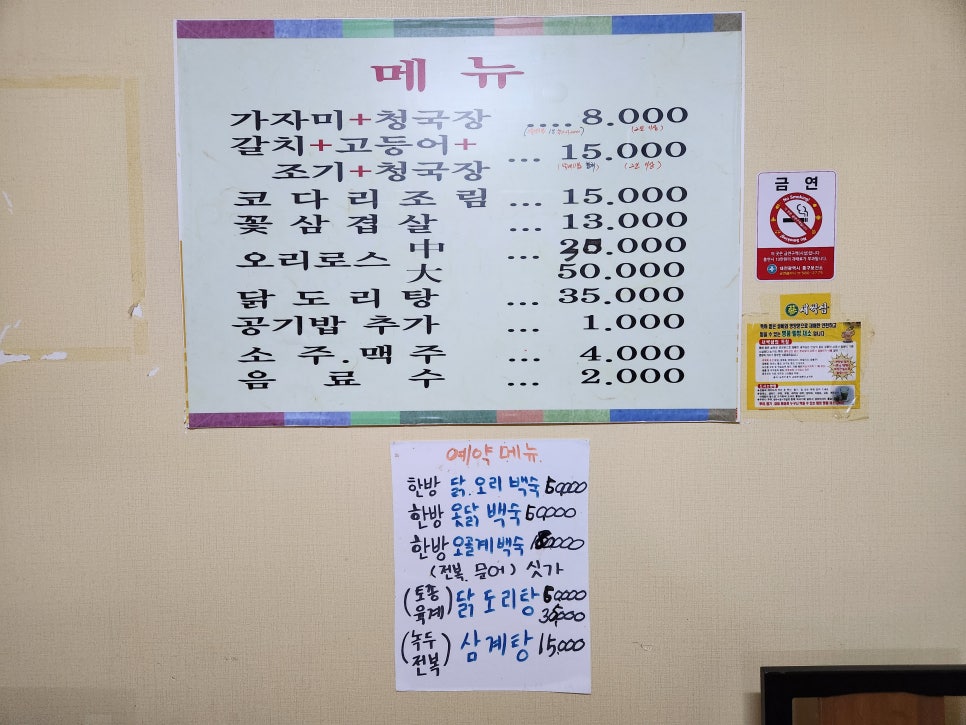 메 뉴
가자미+청국장 ....8.000
갈치+고등어+
조기+청국장 ... 15.000
코 다 리 조 림 ... 15.000
꽃 삼 겹 살 ... 13.000
오리로스 中 ... .000
大 50.000
닭 도 리 탕 ... 35.000
공기밥 추가 ... 1.000
소 주.맥 주 ... 4.000
음 료 수 ... 2.000
금 연
No Smoking!
대전광역시 중구보건소
새싹삼
예약 메뉴
한방 닭.오리 백숙 50,000
한방 옻닭 백숙 50,000
한방 오골계백숙
(전복. 문어) 싯가
(토종 육계) 닭 도리탕 50,000
35,000
(녹두 전복) 삼계탕 15,000